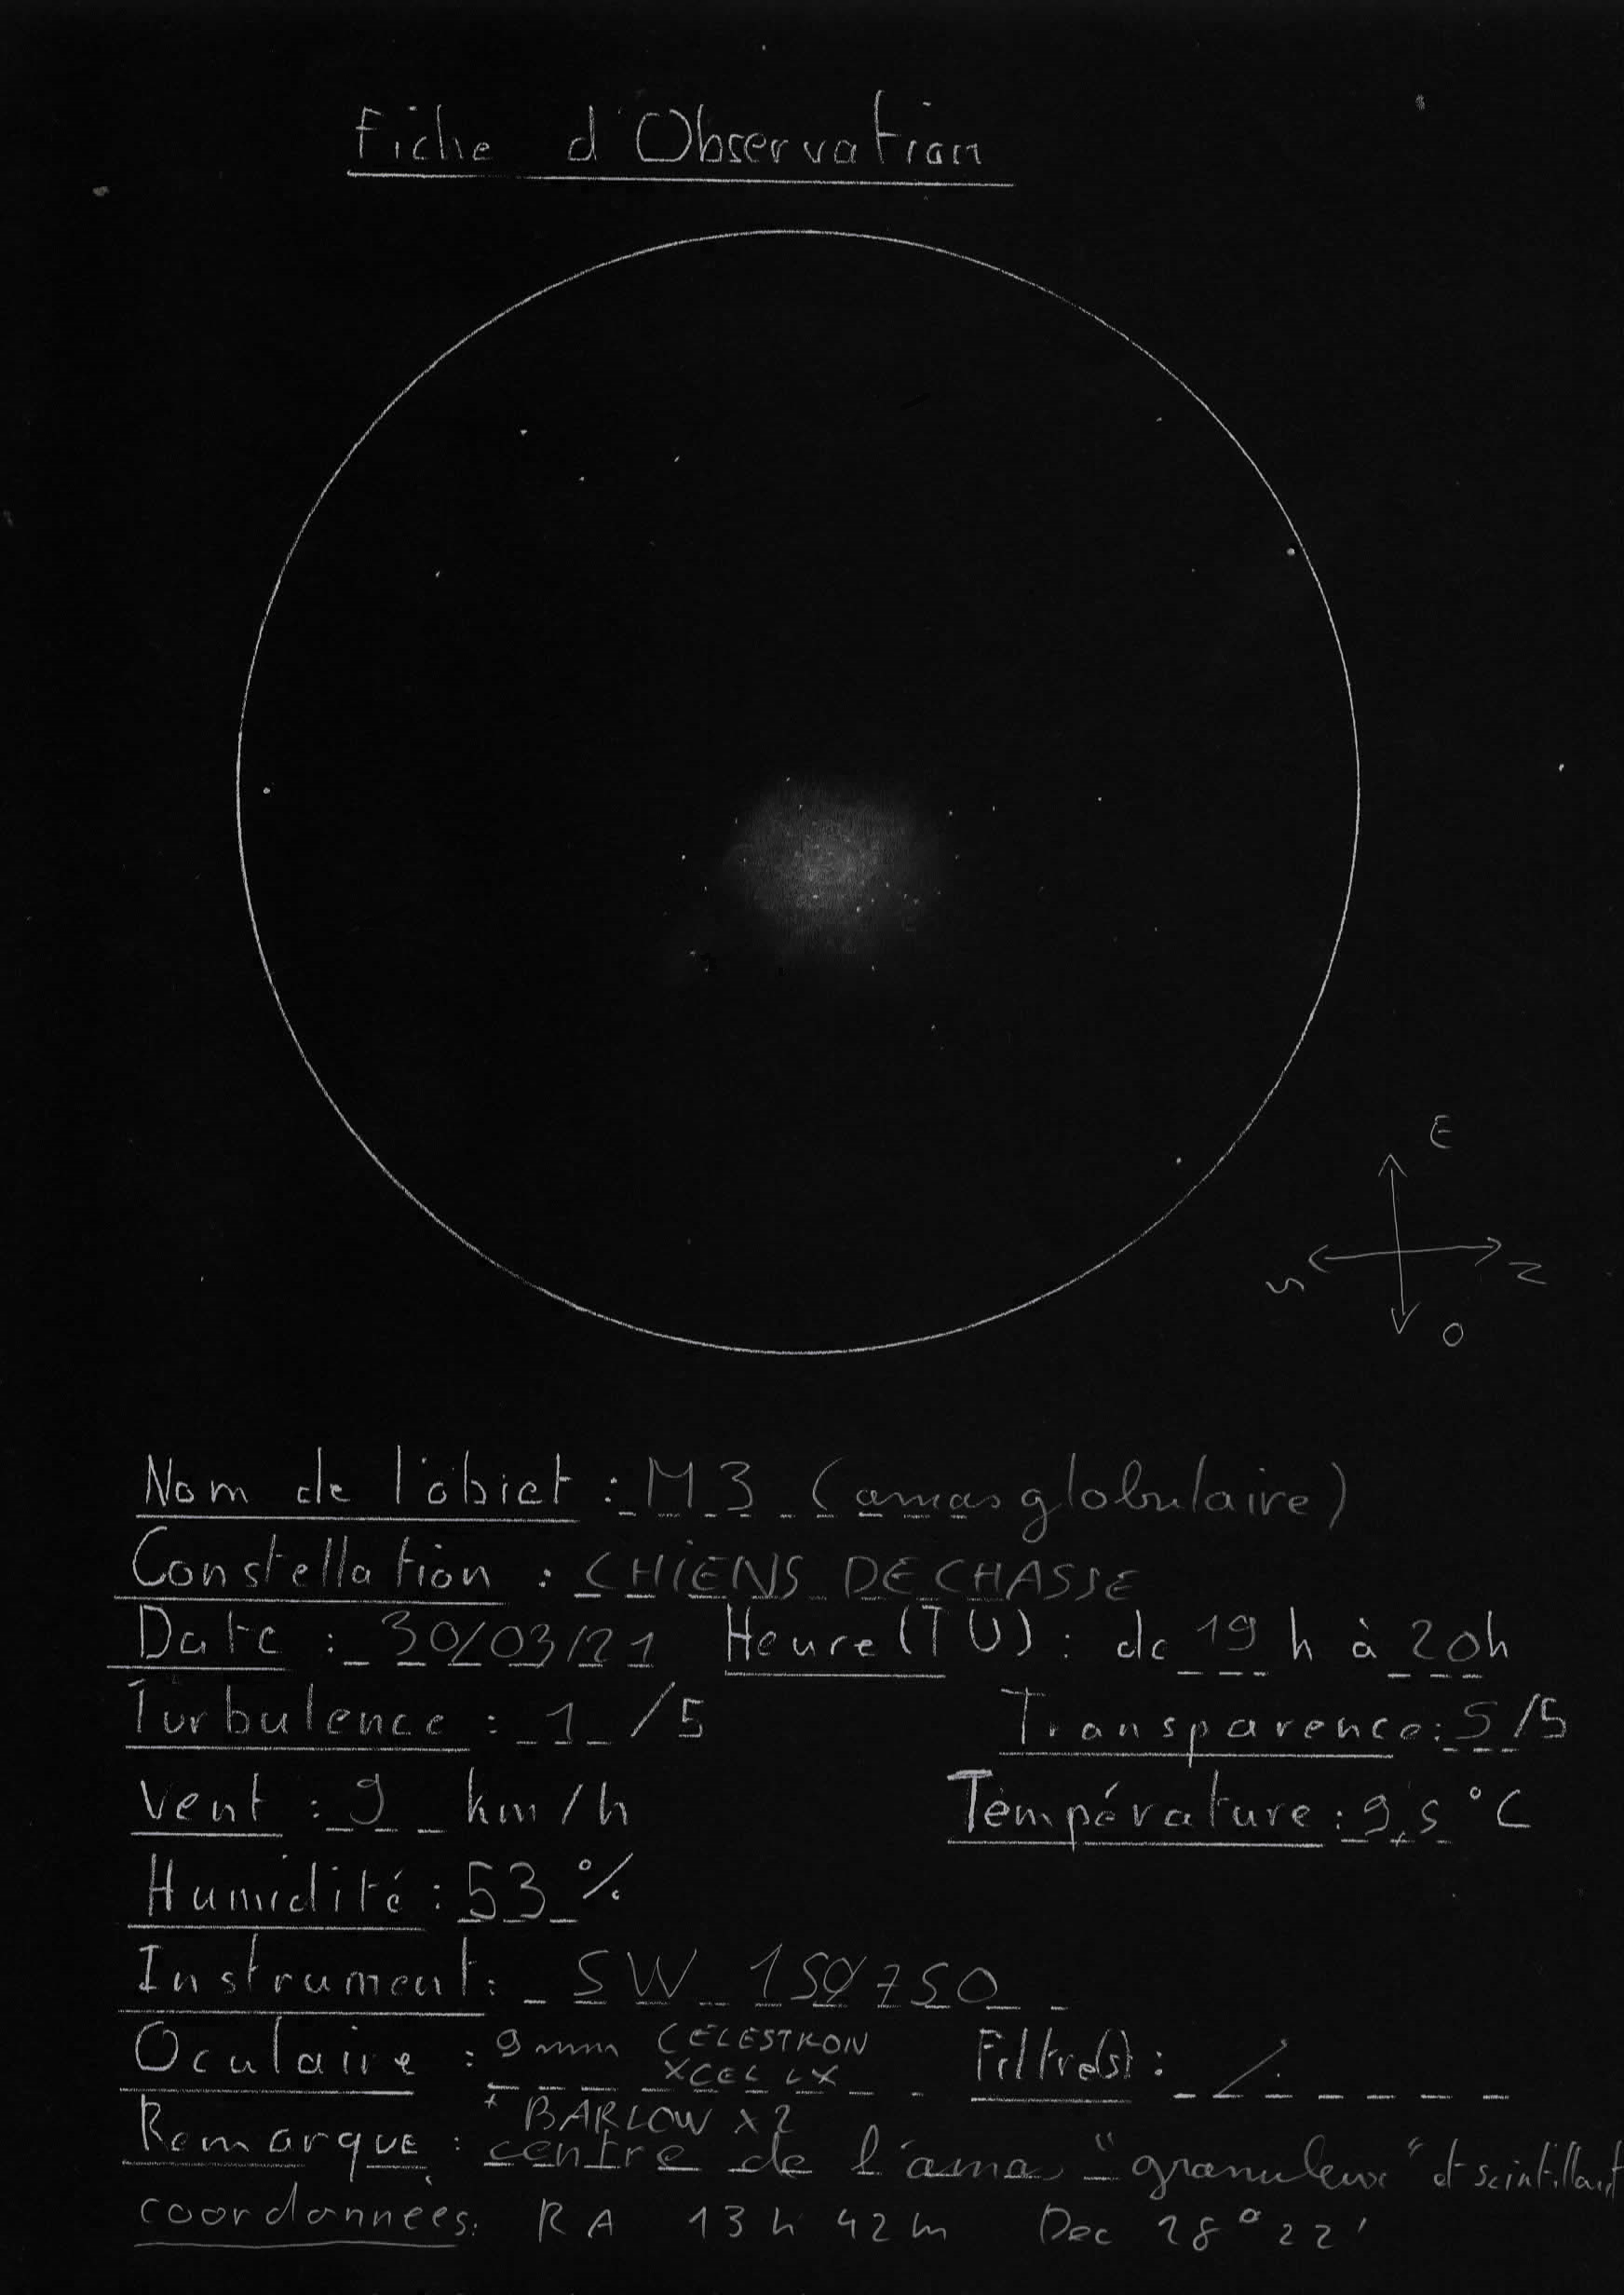 Fiche d'Observation
E
S N
O
Nom de l'objet : M 3 (amas globulaire)
Constellation : CHIENS DE CHASSE
Date : 30/03/21 Heure (TU) : de 19 h à 20h
Turbulence : 1 /5 Transparence : 5 /5
Vent : 9 km/h Température : 9,5 °C
Humidité : 53 %
Instrument : SW 150/750
Oculaire : 9mm CELESTRON Filtre(s) : /
XCEL LX
+ BARLOW x2
Remarque : centre de l'ama "granuleux" et scintillant
coordonnées : RA 13h 42m Dec 28° 22'